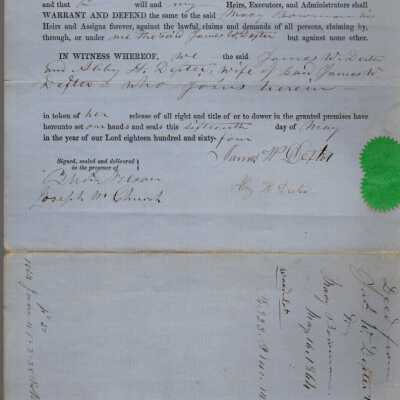 and that I will and my Heirs, Executors, and Administrators shall
WARRANT AND DEFEND the same to the said Mary Bowman her
Heirs and Assigns forever, against the lawful claims and demands of all persons, claiming by,
through, or under me the said James W. Dexter but against none other.
IN WITNESS WHEREOF, we the said James W. Dexter
and Abby H. Dexter, wife of said James W
Dexter who joins herein
in token of her release of all right and title of or to dower in the granted premises have
hereunto set our hands and seals this sixteenth day of May
in the year of our Lord eighteen hundred and sixty-four
Signed, sealed and delivered
in the presence of
James W Dexter
Joseph W Church
Deed from
W. Dexter
To
Mary Bowman
May 16, 1864